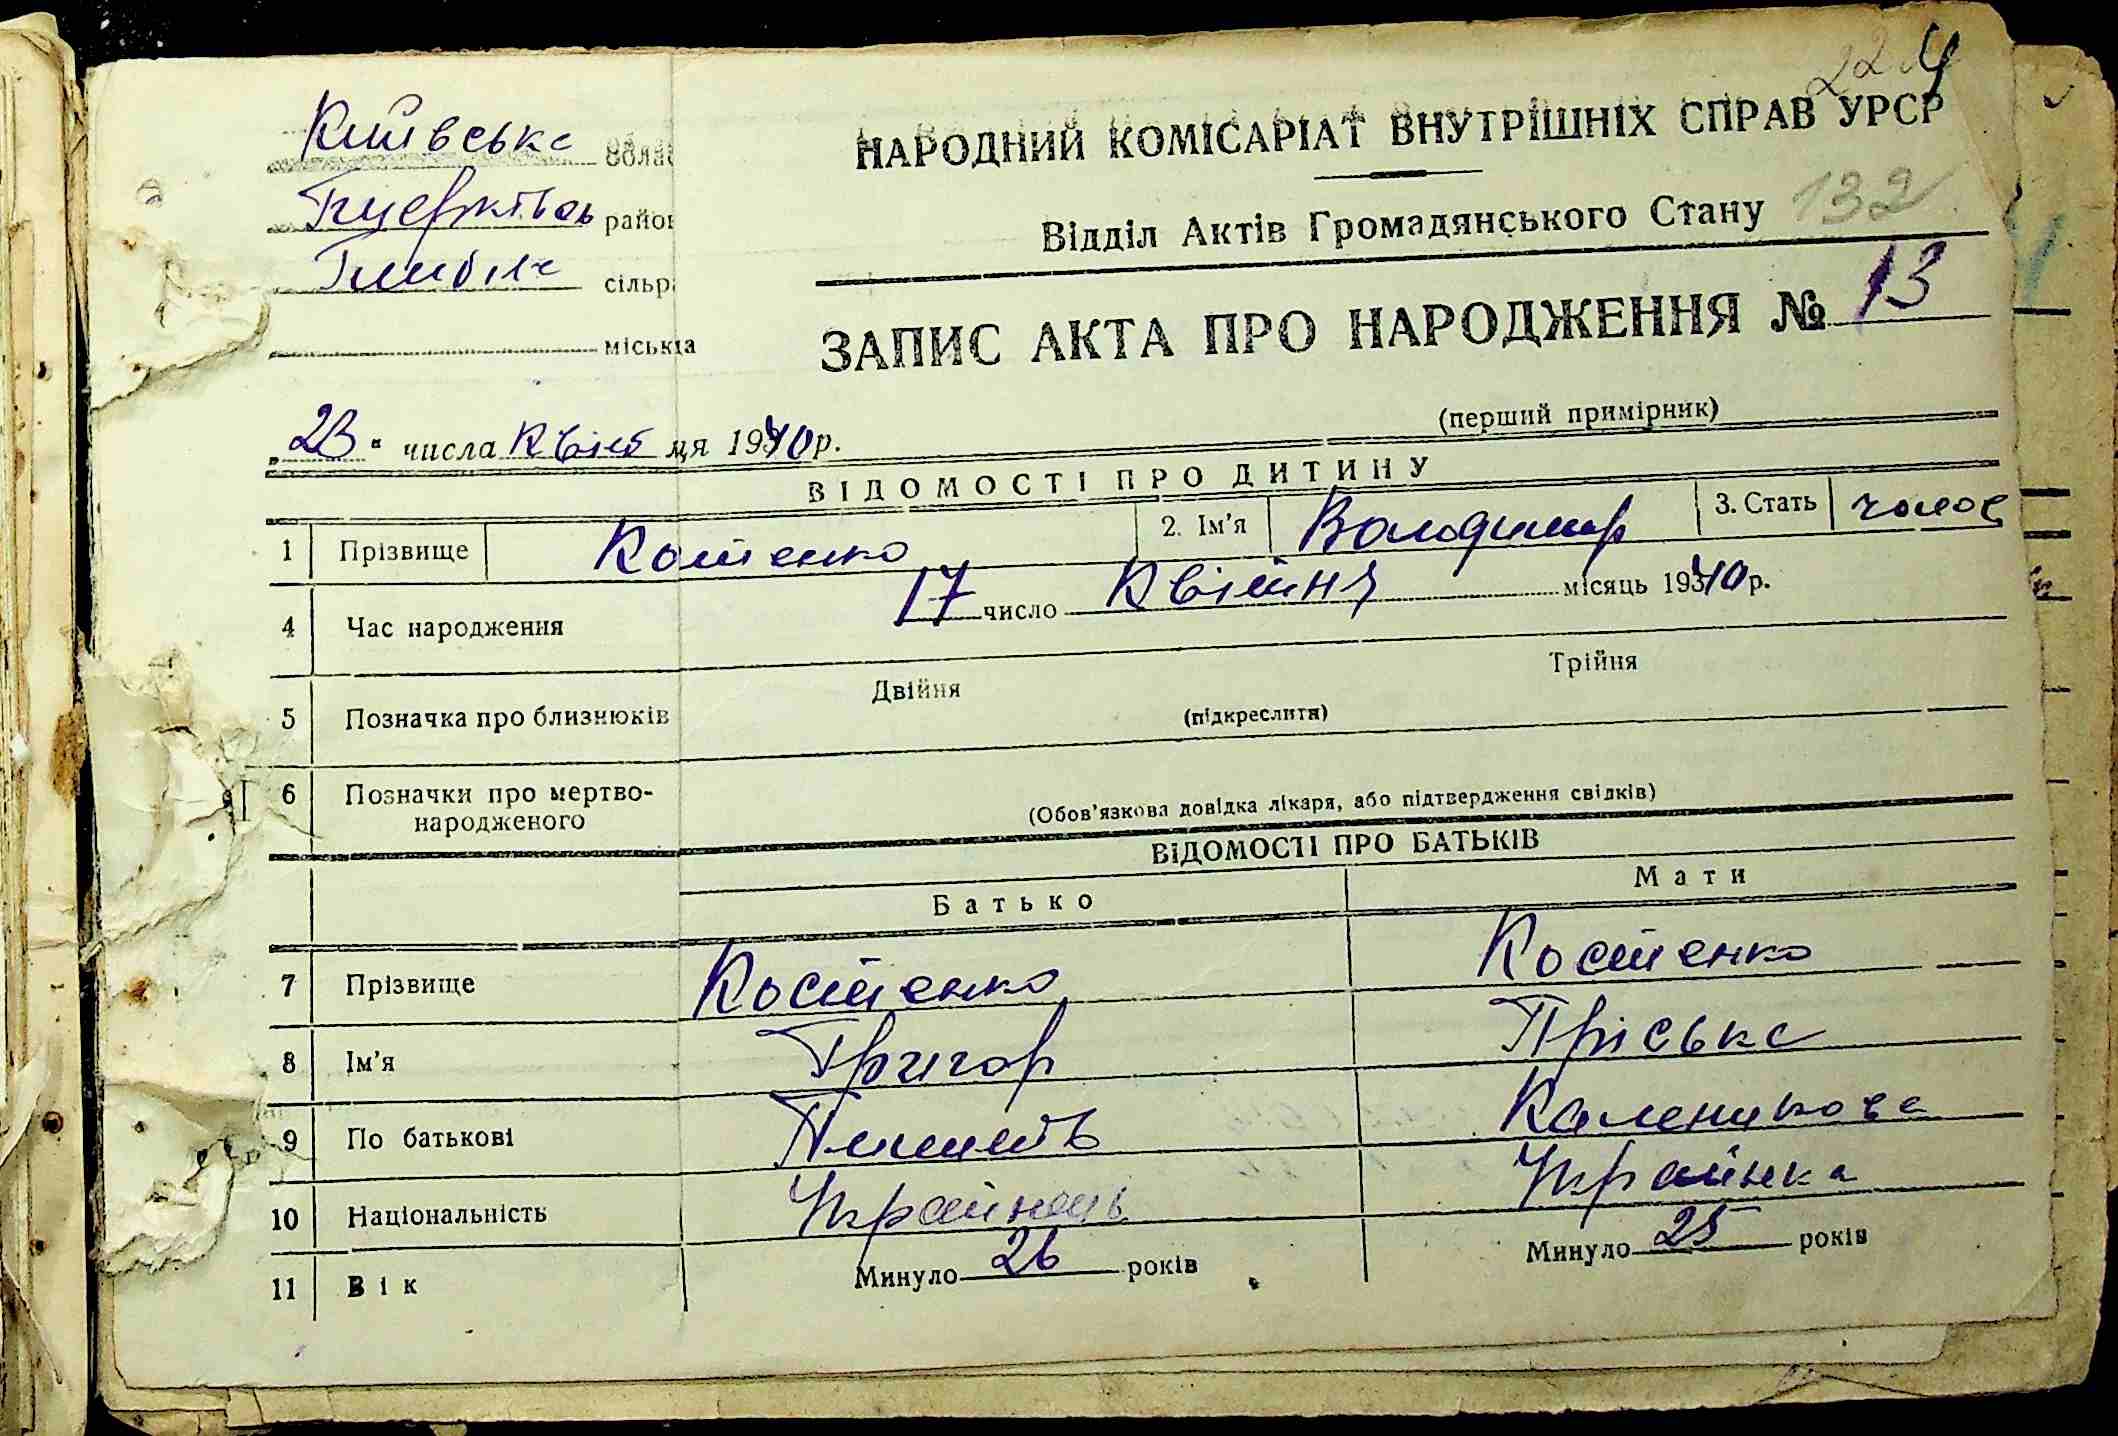 224
Київська обла
район
сільра
міська
НАРОДНИЙ КОМІСАРІАТ ВНУТРІШНІХ СПРАВ УРСР
Відділ Актів Громадянського Стану 132
ЗАПИС АКТА ПРО НАРОДЖЕННЯ № 13
(перший примірник)
„23“ числа Квіт ця 1940 р.
ВІДОМОСТІ ПРО ДИТИНУ
1 Прізвище Костенко 2. Ім'я Володимир 3. Стать чолов
4 Час народження 17 число Квітня місяць 1940 р.
5 Позначка про близнюків Двійня Трійня
(підкреслити)
6 Позначки про мертво-
народженого
(Обов'язкова довідка лікаря, або підтвердження свідків)
ВІДОМОСТІ ПРО БАТЬКІВ
Батько Мати
7 Прізвище Костенко Костенко
8 Ім'я Григор Пріська
9 По батькові Каленикова
10 Національність Українець Українка
11 Вік Минуло 26 років Минуло 25 років